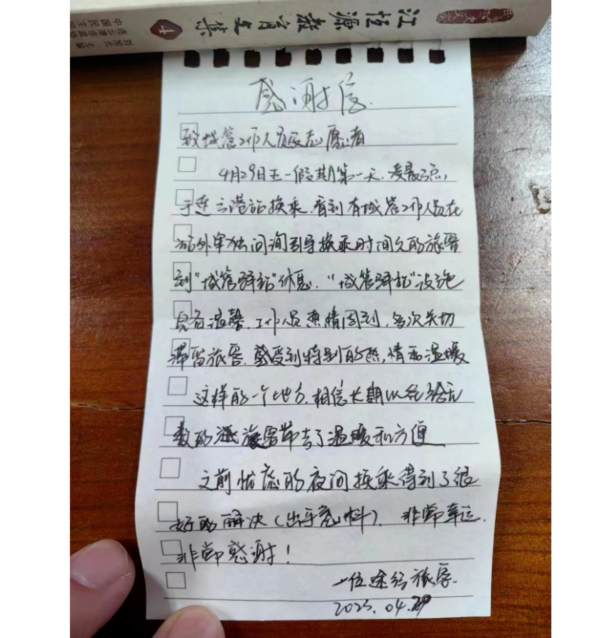 江恒源教育文集
4
感谢信
致城管工作人员及志愿者
4月29日五一假期第一天,凌晨三点,
于连云港站换乘,看到有城管工作人员在
站外审独问询引导换乘时间久的旅客
到“城管驿站”休息.“城管驿站”设施
具有温馨.工作人员热情周到,多次关切
滞留旅客.感受到特别的热情和温暖
这样的一个地方,相信长期以来给无
数的旅客带去了温暖和方便
之前忧虑的夜间换乘得到了很
好的解决(出乎意料).非常幸运.
非常感谢!
一位途经旅客.
2023.04.29